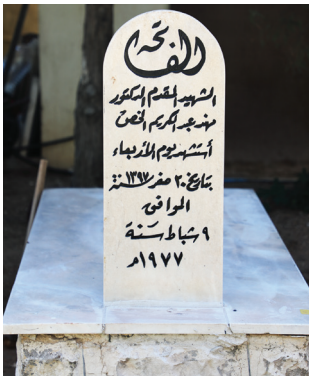 الفاتحة
الشهيد المقدم الدكتور
مهند عبد الكريم
أستشهد يوم الأربعاء
بتاريخ ٢٠ صفر ١٣٩٧ سنة
الموافق
٩ شباط سَنة
١٩٧٧م